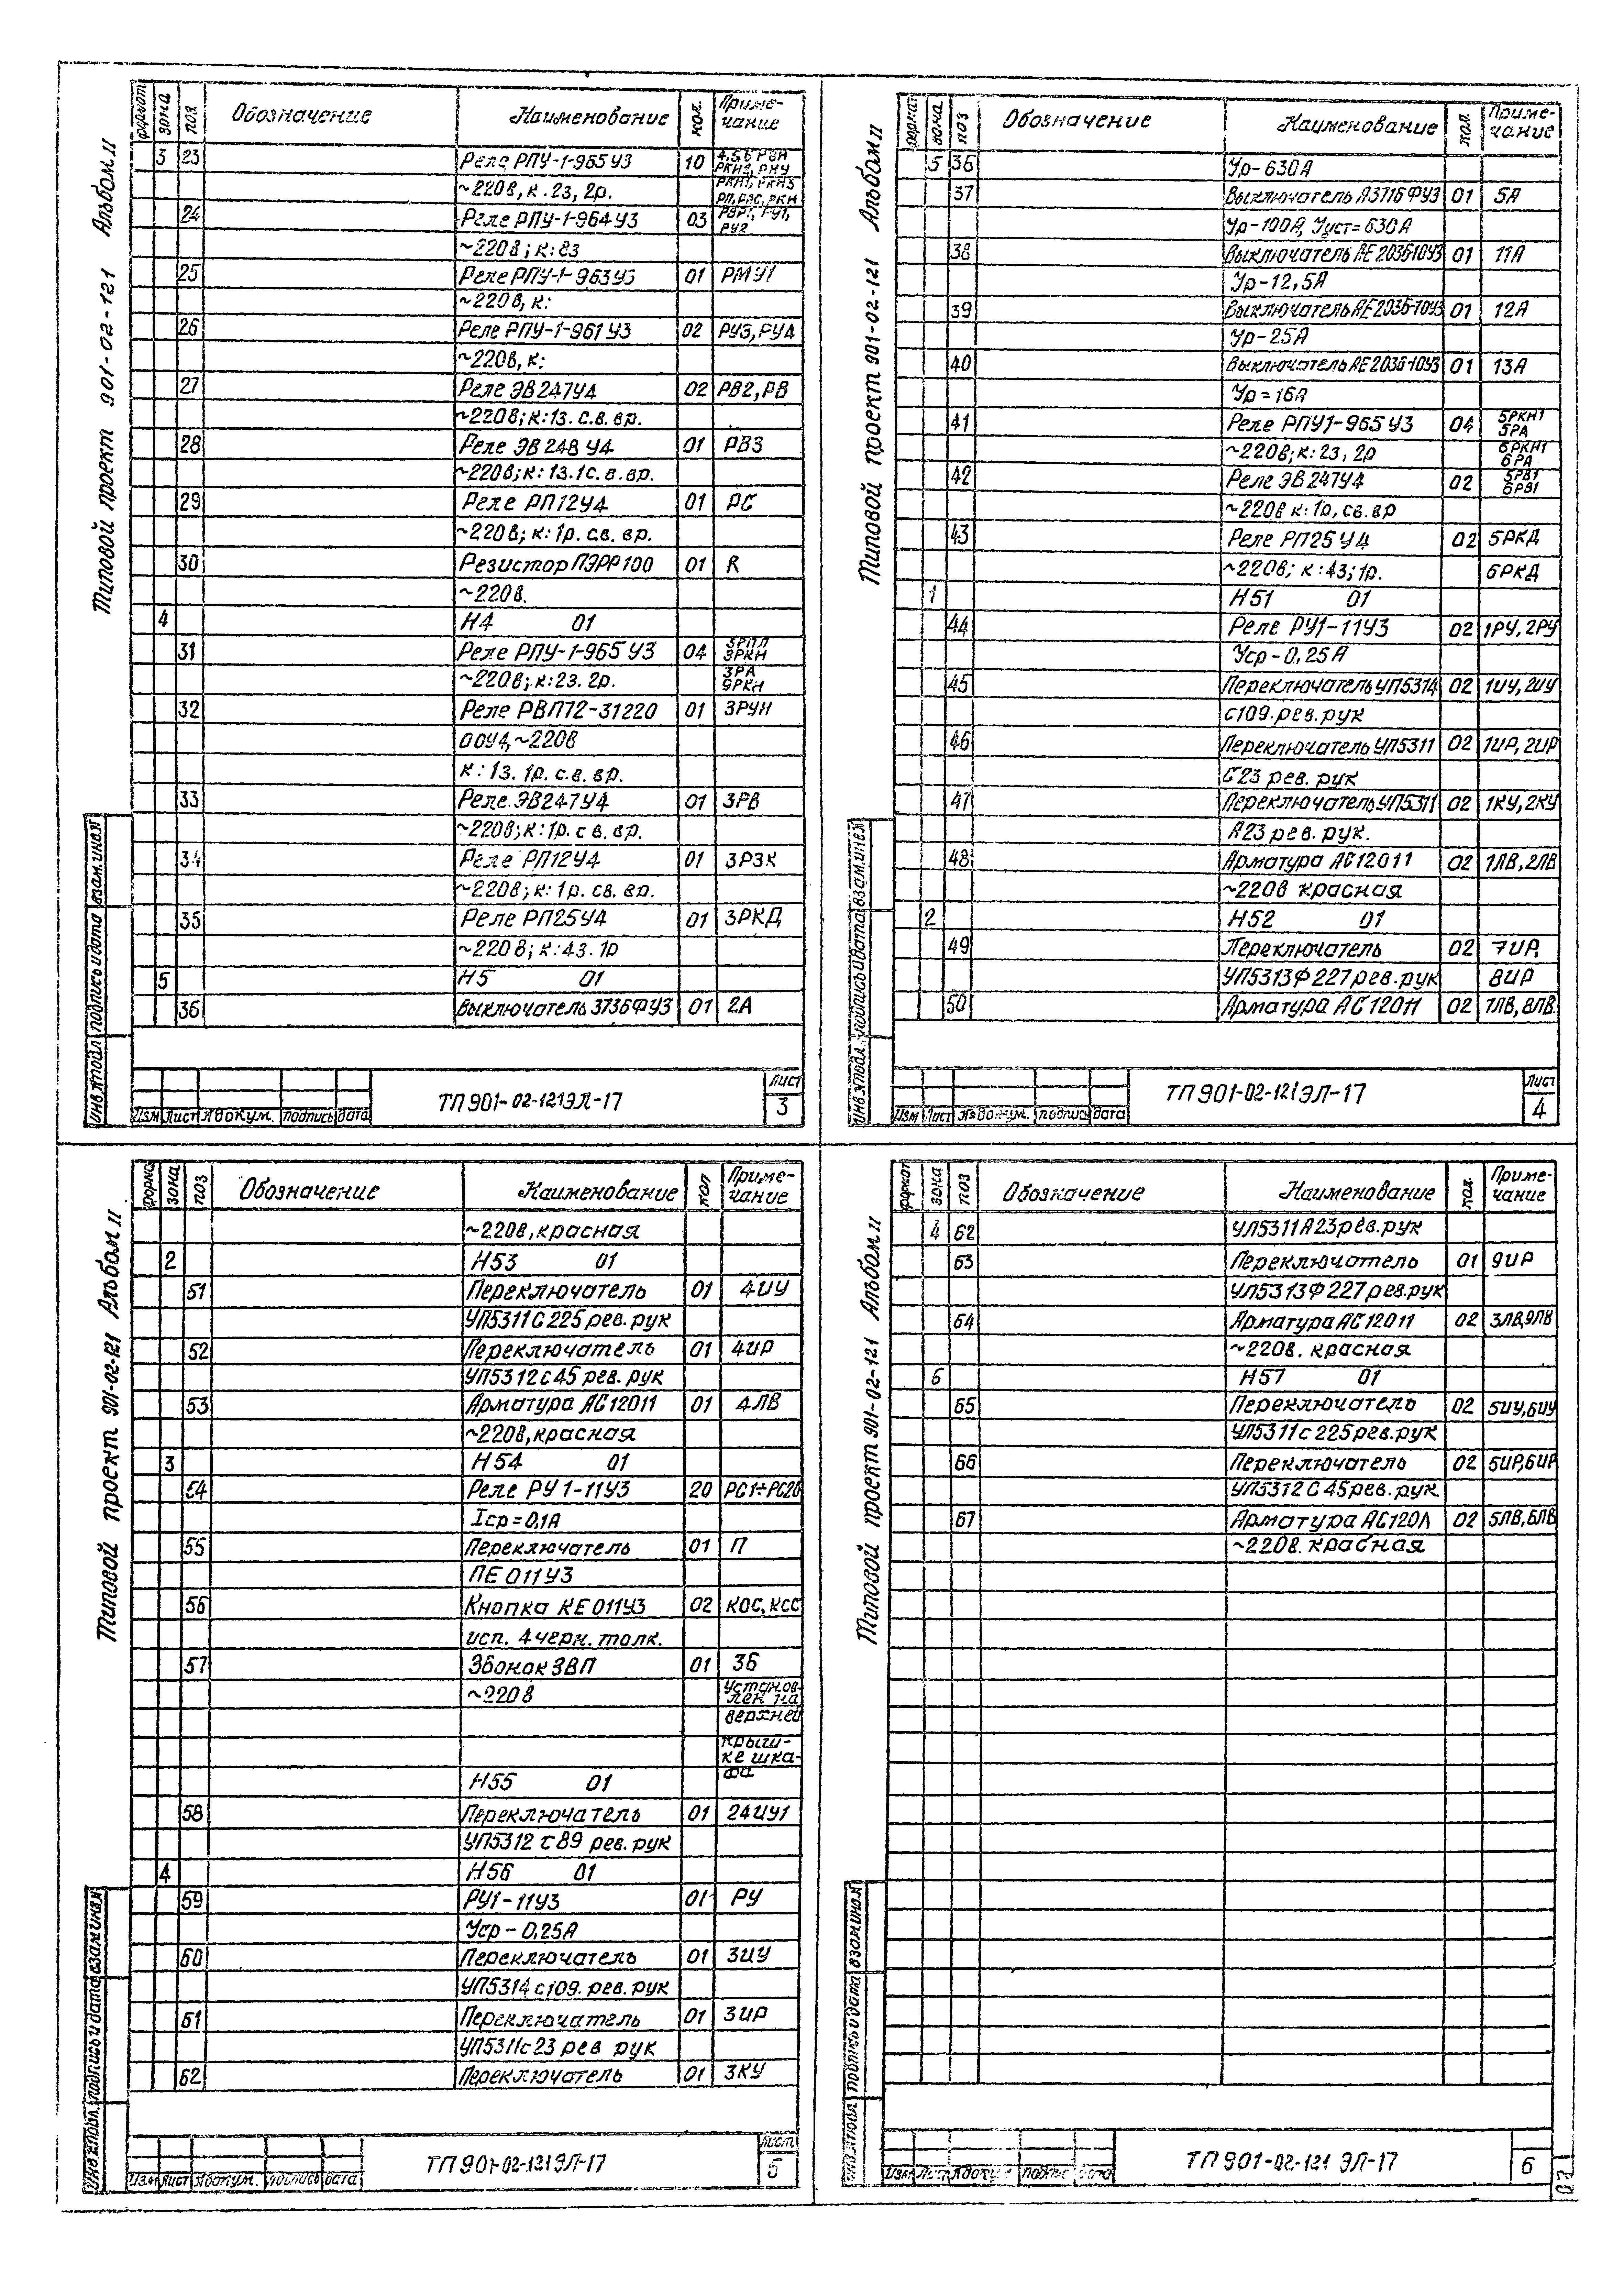 Типовой проект 901-02-121 Альбом II
формат зона поз Обозначение Наименование кол. Приме-
чание
3 23 Реле РПУ-1-965У3 10 4,5,6 РВН
РКН2, РНУ
~220в, к. 23, 2р. РКН1, РКН3
РП, РПС, РКН
24 Реле РПУ-1-964У3 03 РВР1, РУ1,
РУ2
~220в; к: 83
25 Реле РПУ-1-963У3 01 РМУ1
~220в, к:
26 Реле РПУ-1-961У3 02 РУ3, РУ4
~220в, к:
27 Реле ЭВ247У4 02 РВ2, РВ
~220в; к: 13. с.в. вр.
28 Реле ЭВ 248 У4 01 РВ3
~220в; к: 13.1с. в. вр.
29 Реле РП12У4 01 РС
~220в; к: 1р. св. вр.
30 Резистор ПЭРР100 01 R
~220в.
4 Н4 01
31 Реле РПУ-1-965У3 04 3РПЛ
3РКН
~220в; к:23. 2р. 3РА
9РКН
32 Реле РВП72-31220 01 3РУН
00У4, ~220в
к: 13. 1р. с.в. вр.
33 Реле ЭВ247У4 01 3РВ
~220в; к: 1р. св. вр.
34 Реле РП12У4 01 3РЗК
~220в; к: 1р. св. вр.
35 Реле РП25У4 01 3РКД
~220в; к: 43. 1р
5 Н5 01
36 Выключатель 3736ФУ3 01 2А
Инв.№подл подпись и дата взам.инв.№
Изм Лист №докум. подпись дата ТП 901-02-121 ЭЛ-17 Лист
3
Типовой проект 901-02-121 Альбом II
формат зона поз Обозначение Наименование кол. Приме-
чание
5 36 Ур-630А
37 Выключатель А3716ФУ3 01 5А
Ур-100А, Ууст=630А
38 Выключатель АЕ2036-10У3 01 11А
Ур-12,5А
39 Выключатель АЕ2036-10У3 01 12А
Ур-25А
40 Выключатель АЕ2036-10У3 01 13А
Ур=16А
41 Реле РПУ1-965У3 04 5РКН1
5РА
~220в; к: 23, 2р 6РКН1
6РА
42 Реле ЭВ247У4 02 5РВ1
6РВ1
~220в к: 1р, св. вр
43 Реле РП25У4 02 5РКД
~220в; к: 43; 1р. 6РКД
1 Н51 01
44 Реле РУ1-11У3 02 1РУ, 2РУ
Уср-0,25А
45 Переключатель УП5314 02 1ИУ, 2ИУ
с109. рев. рук
46 Переключатель УП5311 02 1ИР, 2ИР
С23 рев. рук
47 Переключатель УП5311 02 1КУ, 2КУ
А23 рев. рук.
48 Арматура АС12011 02 1ЛВ, 2ЛВ
~220в красная
2 Н52 01
49 Переключатель 02 7ИР,
УП5313Ф227 рев. рук 8ИР
50 Арматура АС12011 02 7ЛВ, 8ЛВ
Инв.№подл. подпись и дата взам.инв.№
Изм Лист №докум. подпись дата ТП 901-02-121 ЭЛ-17 Лист
4
Типовой проект 901-02-121 Альбом II
формат зона поз Обозначение Наименование кол Приме-
чание
~220в, красная
2 Н53 01
51 Переключатель 01 4ИУ
УП5311 С225 рев. рук
52 Переключатель 01 4ИР
УП5312 с45 рев. рук
53 Арматура АС12011 01 4ЛВ
~220в, красная
3 Н54 01
54 Реле РУ1-11У3 20 РС1÷РС20
Iср=0,1А
55 Переключатель 01 П
ПЕ 011У3
56 Кнопка КЕ011У3 02 КОС, КСС
исп. 4 черн. толк.
57 Звонок ЗВП 01 Зб
~220в Установ-
лен на
верхней
крыш-
ке шка-
фа
Н55 01
58 Переключатель 01 24ИУ1
УП5312 с89 рев. рук
4 Н56 01
59 РУ1-11У3 01 РУ
Уср-0,25А
60 Переключатель 01 3ИУ
УП5314 с109. рев. рук
61 Переключатель 01 3ИР
УП5311с23 рев рук
62 Переключатель 01 3КУ
Инв.№подл. подпись и дата взам инв.№
Изм Лист №докум. подпись дата ТП 901-02-121 ЭЛ-17 Лист
5
Типовой проект 901-02-121 Альбом II
формат зона поз Обозначение Наименование кол. Приме-
чание
4 62 УП5311А23 рев. рук
63 Переключатель 01 9ИР
УП5313Ф227 рев.рук
64 Арматура АС12011 02 3ЛВ, 9ЛВ
~220в. красная
6 Н57 01
65 Переключатель 02 5ИУ, 6ИУ
УП5311 с225 рев. рук
66 Переключатель 02 5ИР, 6ИР
УП5312 С45 рев. рук
67 Арматура АС12011 02 5ЛВ, 6ЛВ
~220в. красная
Инв.№подл подпись и дата взам инв.№
Изм Лист №докум подпись дата ТП 901-02-121 ЭЛ-17 6